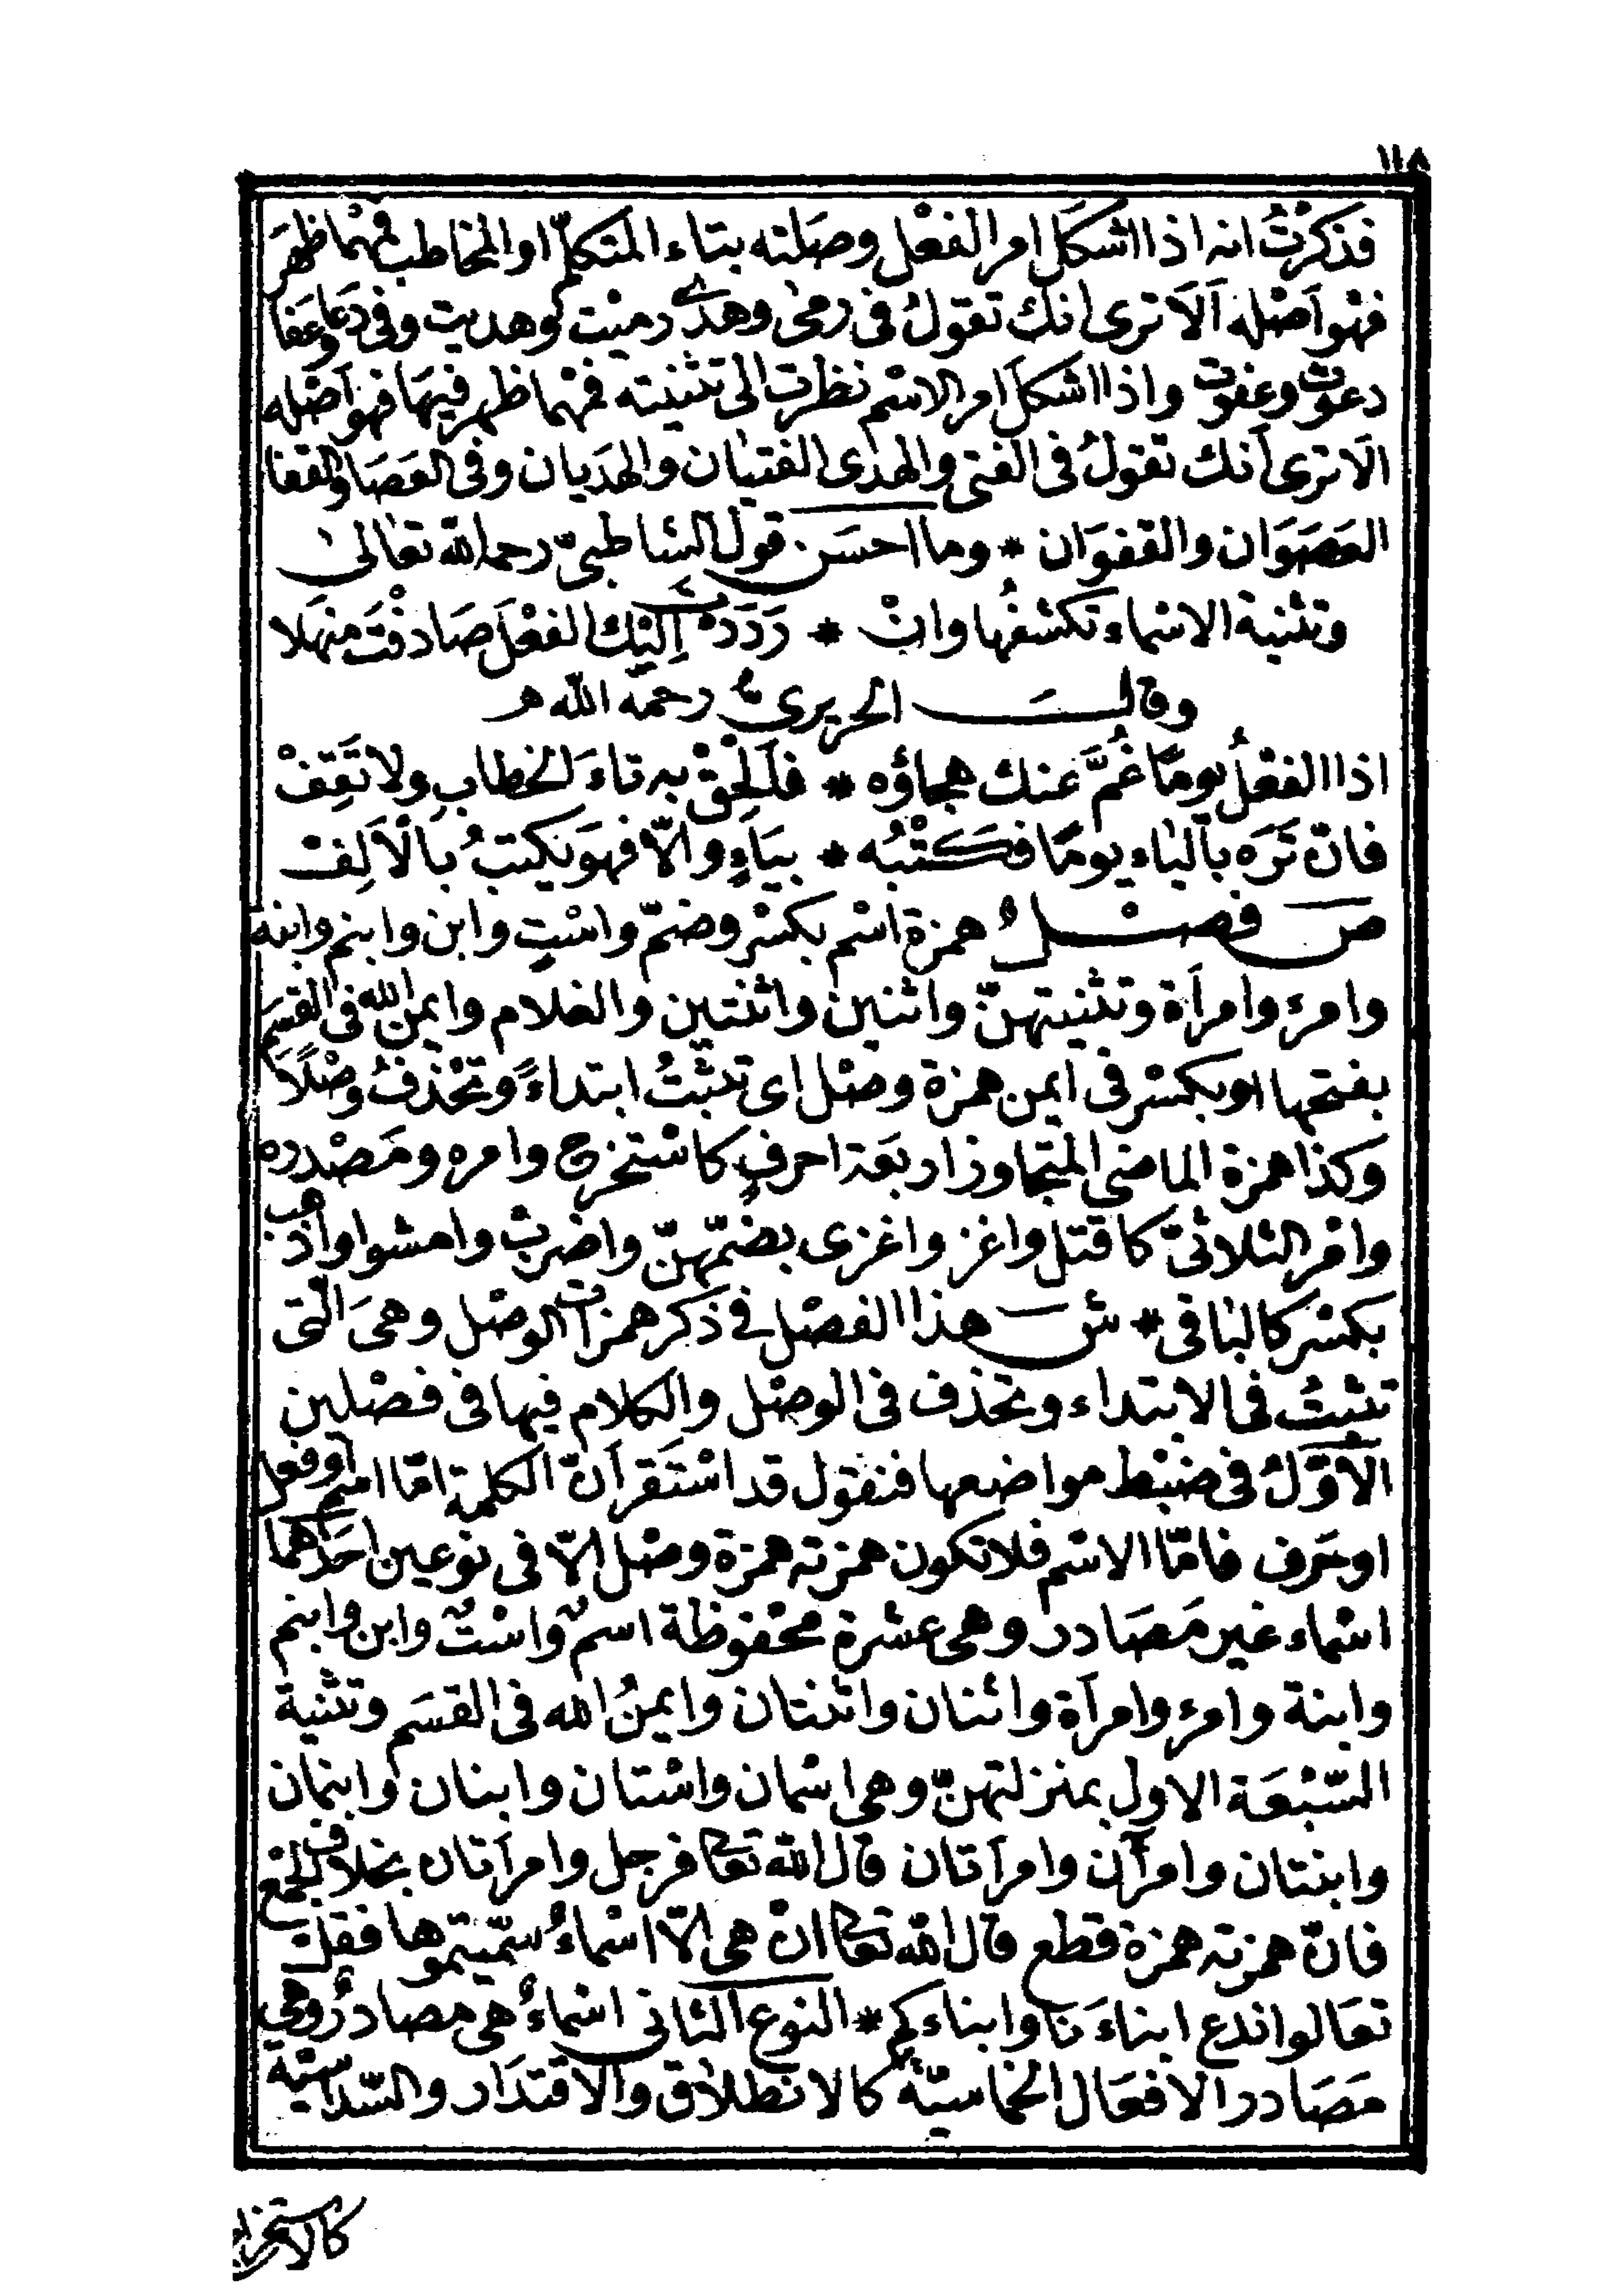 ١١٨
فذكرْتُ انه اذا اشكلَ امر الفعْل وصَلته بتاء المتكلّم او المخاطب فمهْما ظهَرَ
فهْو اَصْله اَلاَ ترى انك تقولُ فى رمىٰ وهدٰى رميْت وهديت وفى دَعا وعَفا
دعوْت وعفوْت واذا اشكلَ امر الاسْم نظرت الى تثنيته فمهْما ظهر فيهَا فهو اَصْله
الاَ ترى اَنك تقولُ فى الفتى والهدٰى الفتيٰان والهدَيان وفى العَصَا والقفا
العَصَوَان والقفوَان * وما احسَن قول الشاطبىّ رحمه الله تعٰالىٰ
وتثنية الاسْماء تكشفُها وانْ * رَدَدْت اِليْك الفعْلَ صَادفْتَ منهَلا
وقالَ الحريرىُّ رحمَه الله ه
اذا الفعْلُ يومًا غُمَّ عنك هجاؤه * فاَلحِقْ به تاءَ الخطابِ ولا تَقِفْ
فان تَرَه باليٰاء يومًا فكَتْبُه * بيَاءٍ والاّ فهوَ يكتبُ بالْاَلِفْ
ص فصْلٌ همزة اسْم بكسْر وضمّ واسْتٍ وابن وابنم وابنة
وامرء وامرأة وتثنيتهنّ واثنين واثنتين والغلام وايمن الله فى القسَم
بفتحها او بكسْر فى ايمن همزة وصْل اى تثبتُ ابتداءً وتحْذفُ وصْلًا
وكذا همزة الماضى المتجاوز اربعَة احرفٍ كاسْتخرج وامره ومَصْدره
وامْر الثلاثىّ كاقتل واغز واغزى بضمّهنّ واضربْ وامشوا واذهب
بكسْر كالبٰاقى * ش هذا الفصْل فى ذكر همزات الوصْل وهىَ الّتى
تثبتُ فى الابتداء وتحذف فى الوصْل والكلام فيها فى فصْلين
الاَوّلُ فى ضبْط مواضعها فنقول قد اسْتَقرّ اَنّ الكلمة امّا اسْم او فعل
او حَرف فامّا الاسْم فلا تكون همزته همزة وصْل الاّ فى نوعين احَدهما
اسْماء غير مَصَادر وهى عشرة محْفوظة اسمٌ واسْتٌ وابن وابنم
وابنة وامرء وامرأة واثنان واثنتان وايمنُ الله فى القسَم وتثنية
السّبْعَة الاول بمنزلتهنّ وهى اسْمان واسْتان وابنان وابنمان
وابنتان وامرآن وامرأتان قال الله تعالى فرجل وامرأتان بخلاف الجمْع
فانّ همزته همزة قطع قال الله تعالى انْ هى الاّ اسْماءٌ سمّيتموها فقل
تعَالوا ندع ابناءَنا وابناءكم * النوع الثانى اسْماءٌ هى مصادرُ وهى
مَصَادر الافعَال الخماسيّة كالانطلاق والاقتدَار والسّداسيّة
كالاستخراج